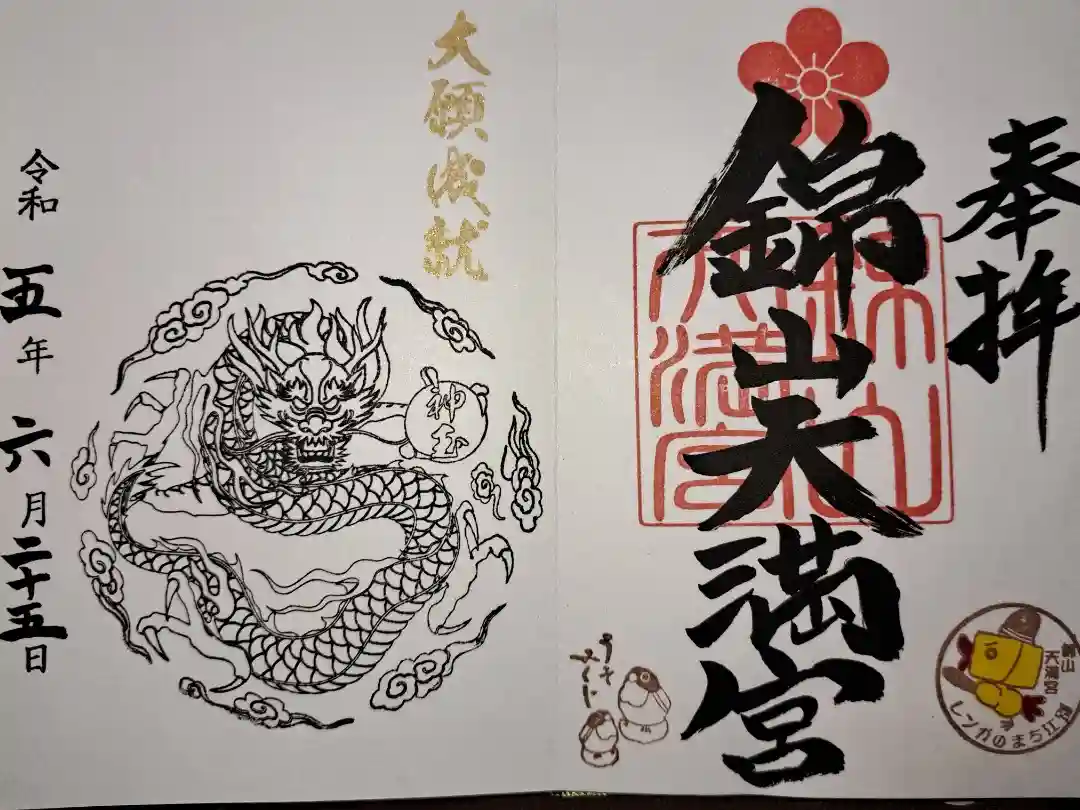 奉拝
錦山天満宮
錦山
天満宮
錦山
天満宮
レンガのまち江別
うそ
みくじ
大願成就
神玉
令和五年六月二十五日